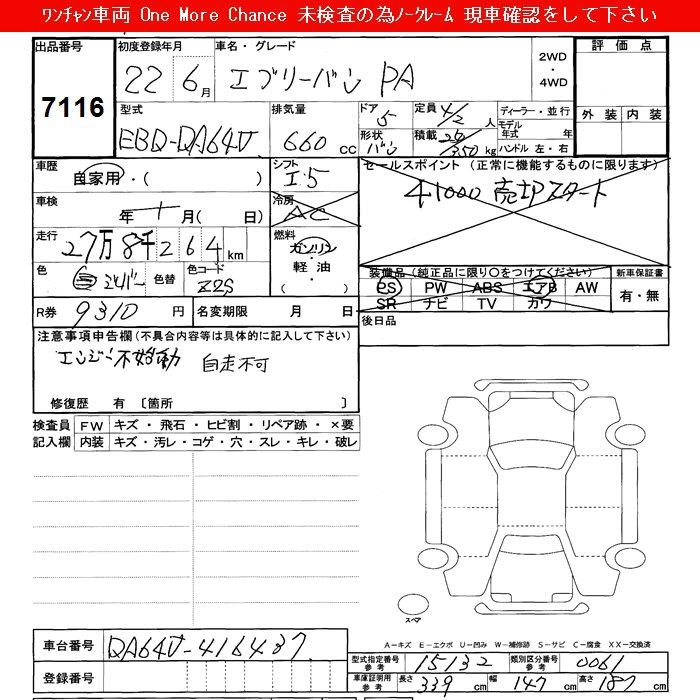 ﾜﾝﾁｬﾝ車両 One More Chance 未検査の為ﾉｰｸﾚｰﾑ 現車確認をして下さい
出品番号 初度登録年月 車名・グレード 評価点
7116 22 6月 エブリーバン PA 2WD・4WD
型式 排気量 ドア 5 定員 4/2人 ディーラー・並行 外装 内装
EBD-DA64V 660cc 形状 バン 積載 200/350kg モデル年式 年 ハンドル 左・右
車歴 シフト セールスポイント (正常に機能するものに限ります)
自家用・( ) I・5 41000 売切スタート
車検 冷房
年 ー 月( 日) AC
走行 燃料
27万8千264km ガソリン・軽油・( )
色 色替 色コード 装備品 (純正品に限り〇をつけてください) 新車保証書
シルバー Z2S PS PW ABS エアB AW 有・無
SR ナビ TV カワ
R券 9310円 名変期限 月 日 後日品
注意事項申告欄(不具合内容等は具体的に記入して下さい)
エンジン不始動 自走不可
修復歴 有 〔箇所 〕
検査員 FW キズ・飛石・ヒビ割・リペア跡・×要
記入欄 内装 キズ・汚レ・コゲ・穴・スレ・キレ・破レ
スペア
A－キズ E－エクボ U－凹み W－補修跡 S－サビ C－腐食 XX－交換済
車台番号 DA64V-416437
型式指定番号 参考 15132 類別区分番号 参考 0061
登録番号
車庫証明用 参考 長さ 339cm 幅 147cm 高さ 187cm